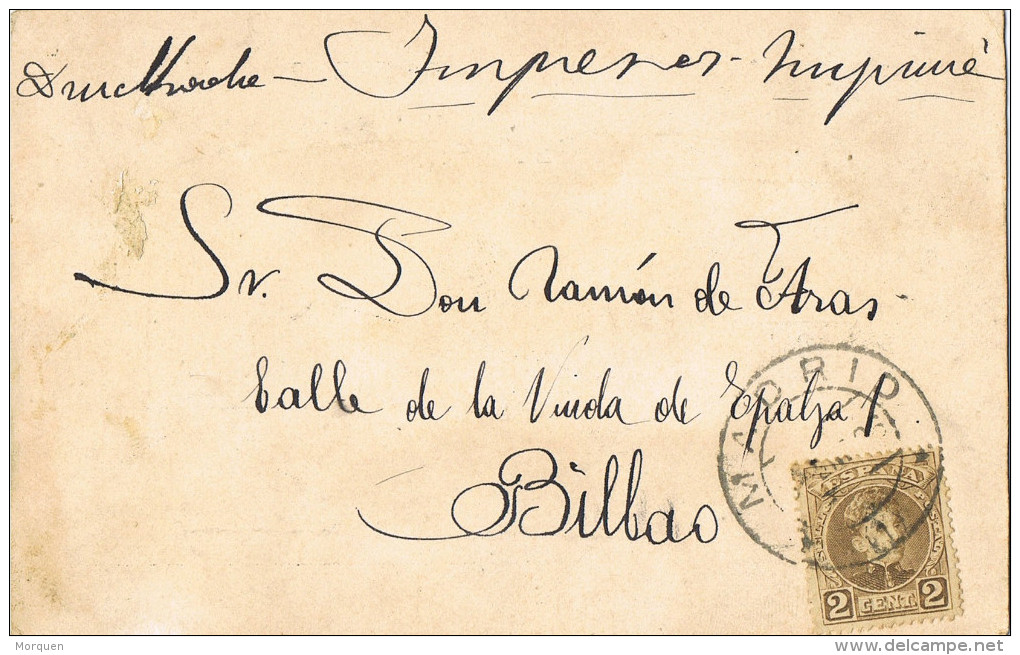 Drucksache – Impresos – Imprimé
Sr. Don Ramón de Aras
Calle de la Viuda de Epalza 1
Bilbao
MADRID
ESPAÑA
2 CENT 2
Morquen
delcampe.net